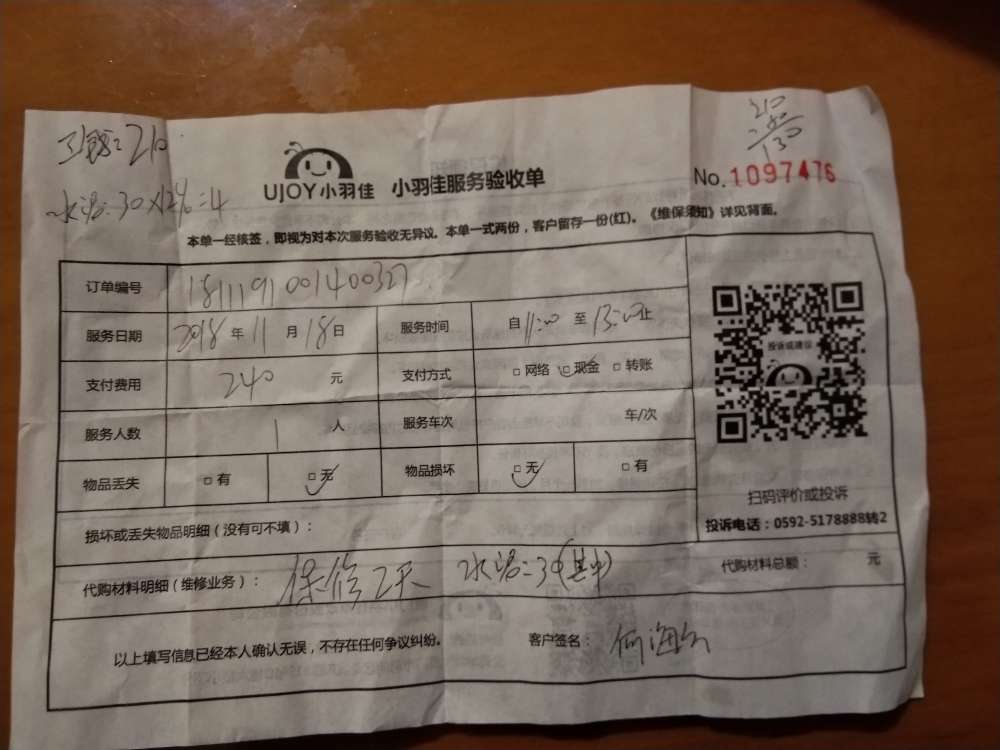 工钱:210
210
水泥:30×12%=4
130
UJOY小羽佳 小羽佳服务验收单
No.1097476
本单一经核签,即视为对本次服务验收无异议。本单一式两份,客户留存一份(红)。《维保须知》详见背面。
订单编号 1811191001400327
服务日期 2018年11月18日 服务时间 自11:00至13:00止
投诉或建议
支付费用 240元 支付方式 □网络 □现金 □转账
服务人数 1人 服务车次 车/次
物品丢失 □有 □无 物品损坏 □无 □有
扫码评价或投诉
投诉电话:0592-5178888转2
损坏或丢失物品明细(没有可不填):
代购材料明细(维修业务): 保修2天 水泥:30(其中)
代购材料总额: 元
以上填写信息已经本人确认无误,不存在任何争议纠纷。 客户签名: